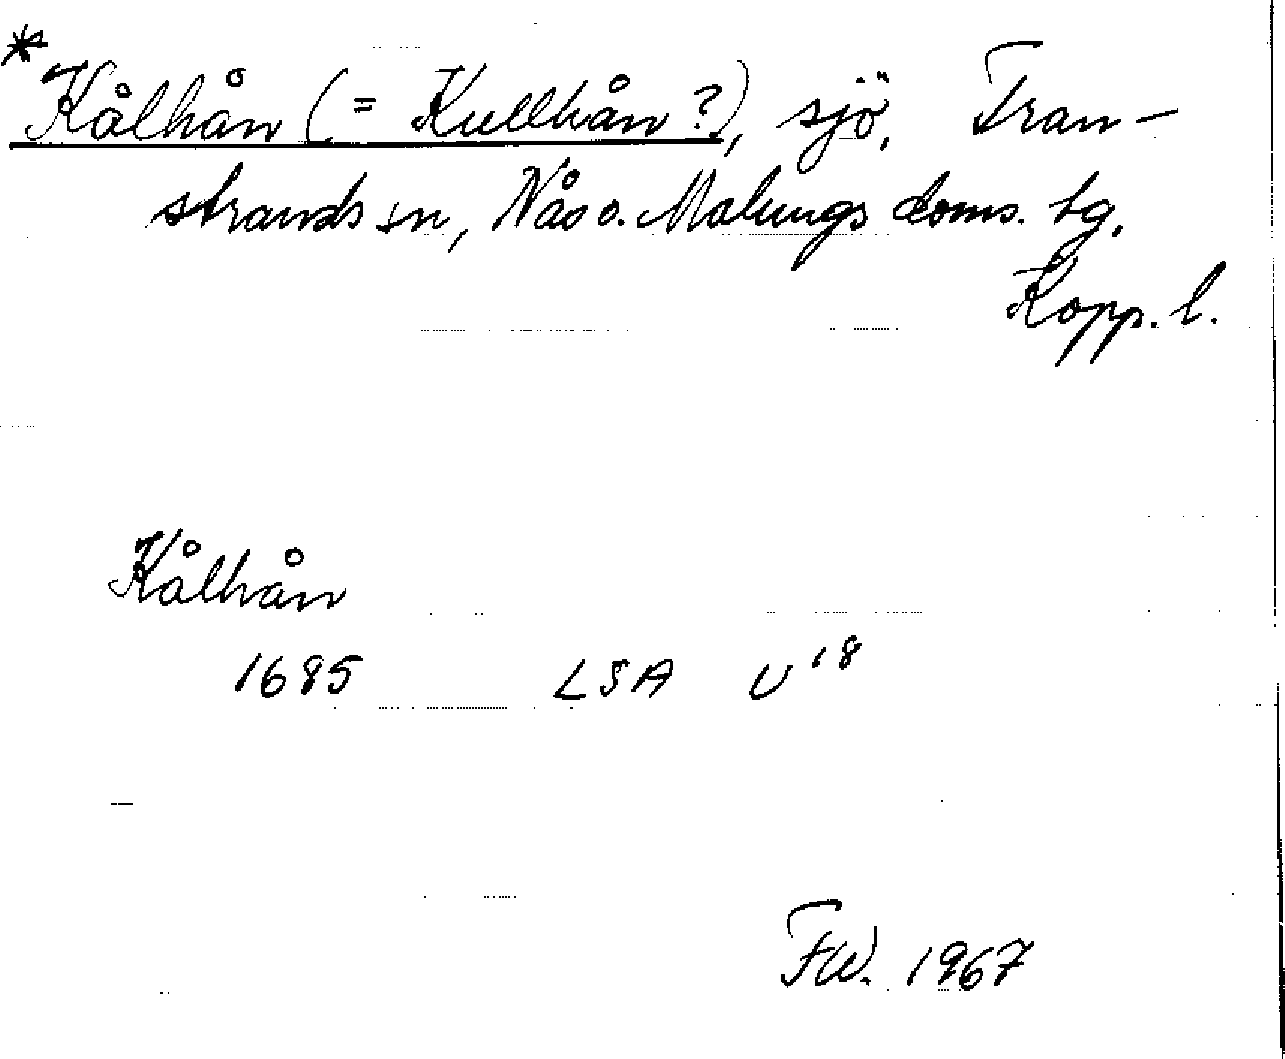 * Kålhån (= Kullhån?), sjö, Tran-
strands sn, Nås o. Malungs doms. tg.
Kopp. l.
Kålhån
1685 LSA U18
FW. 1967